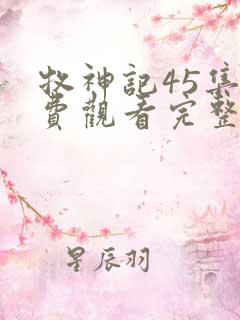 牧神記45集
費觀看完整
星辰羽